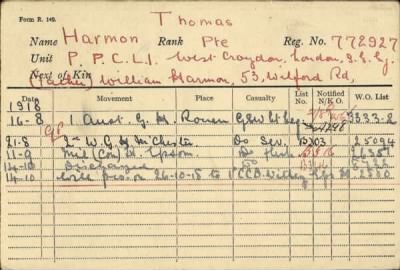 Form R. 149.
Thomas
Name Harmon Rank Pte Reg. No. 772927
Unit P.P.C.L.I. West Croydon, London, S.E.
Next of Kin (Father) William Harmon, 53, Welford Rd,
Date Movement Place Casualty List No. Notified N/K O. W.O. List
1918
16-8 1 Aust. G. H. Rouen G.S.W. Lt leg 3333-2
21-8 2nd W. G. H. M'Chester Do Sev. B103 25094
11-9 Mil (Con) H. Epsom Do
14-10 Discharged Do
14-10 with pro. on 26-10-18 to 1 C.C.D. Witley